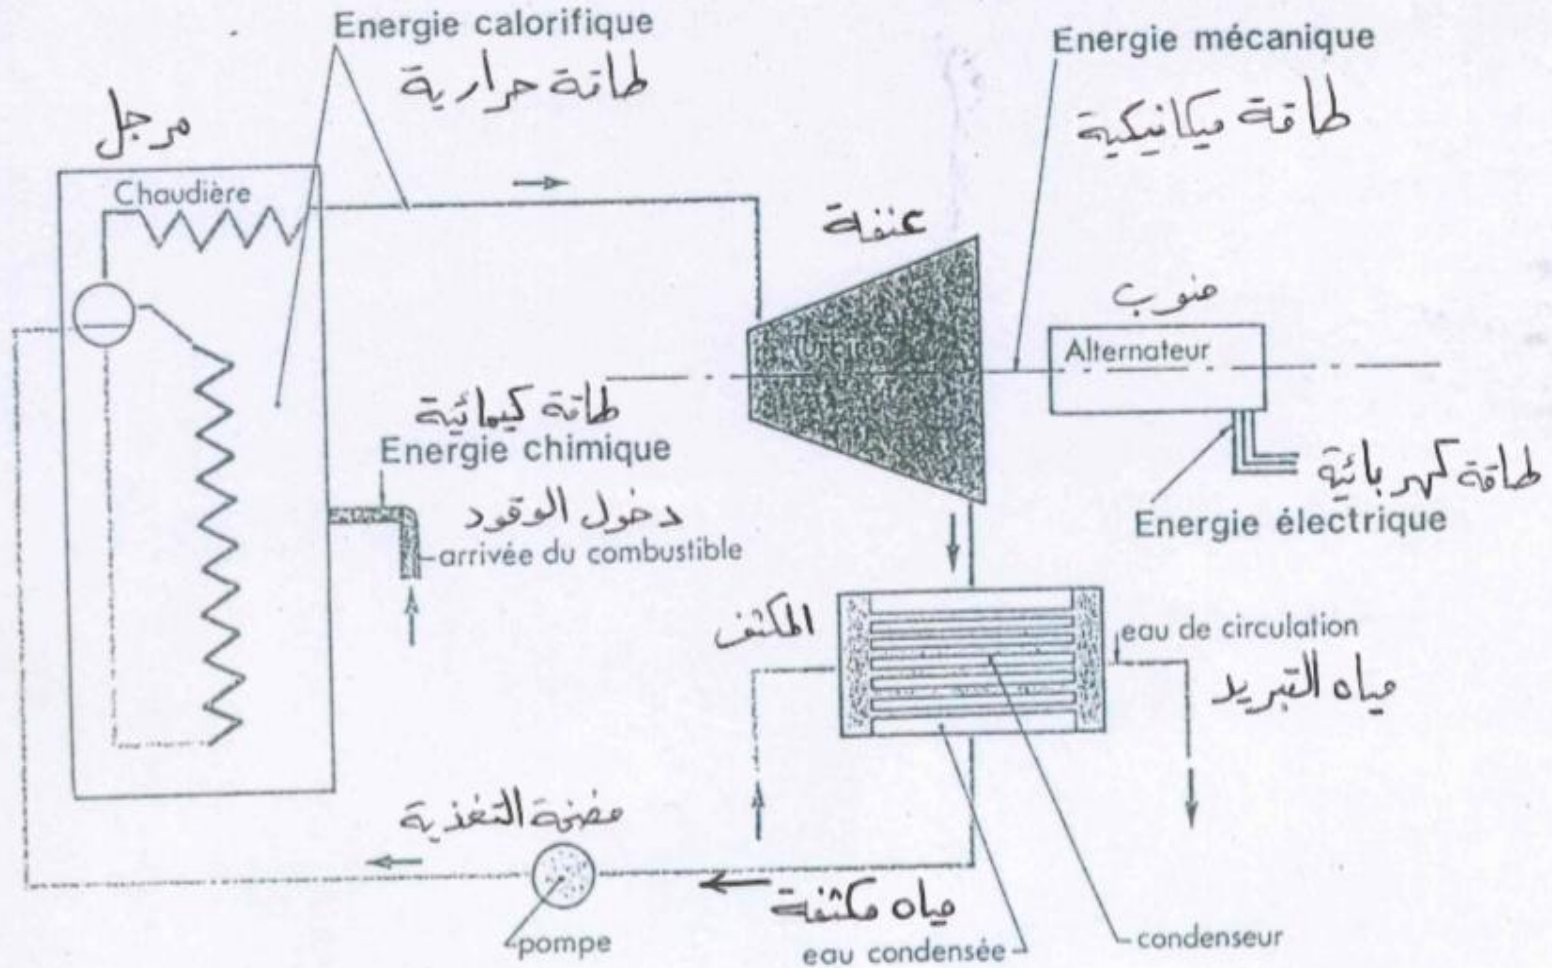 Energie calorifique
طاقة حرارية
Energie mécanique
طاقة ميكانيكية
مرجل
Chaudière
عنفة
منوب
Alternateur
طاقة كيمائية
Energie chimique
دخول الوقود
arrivée du combustible
طاقة كهربائية
Energie électrique
المكثف
eau de circulation
مياه التبريد
مضخة التغذية
pompe
مياه مكثفة
eau condensée
condenseur